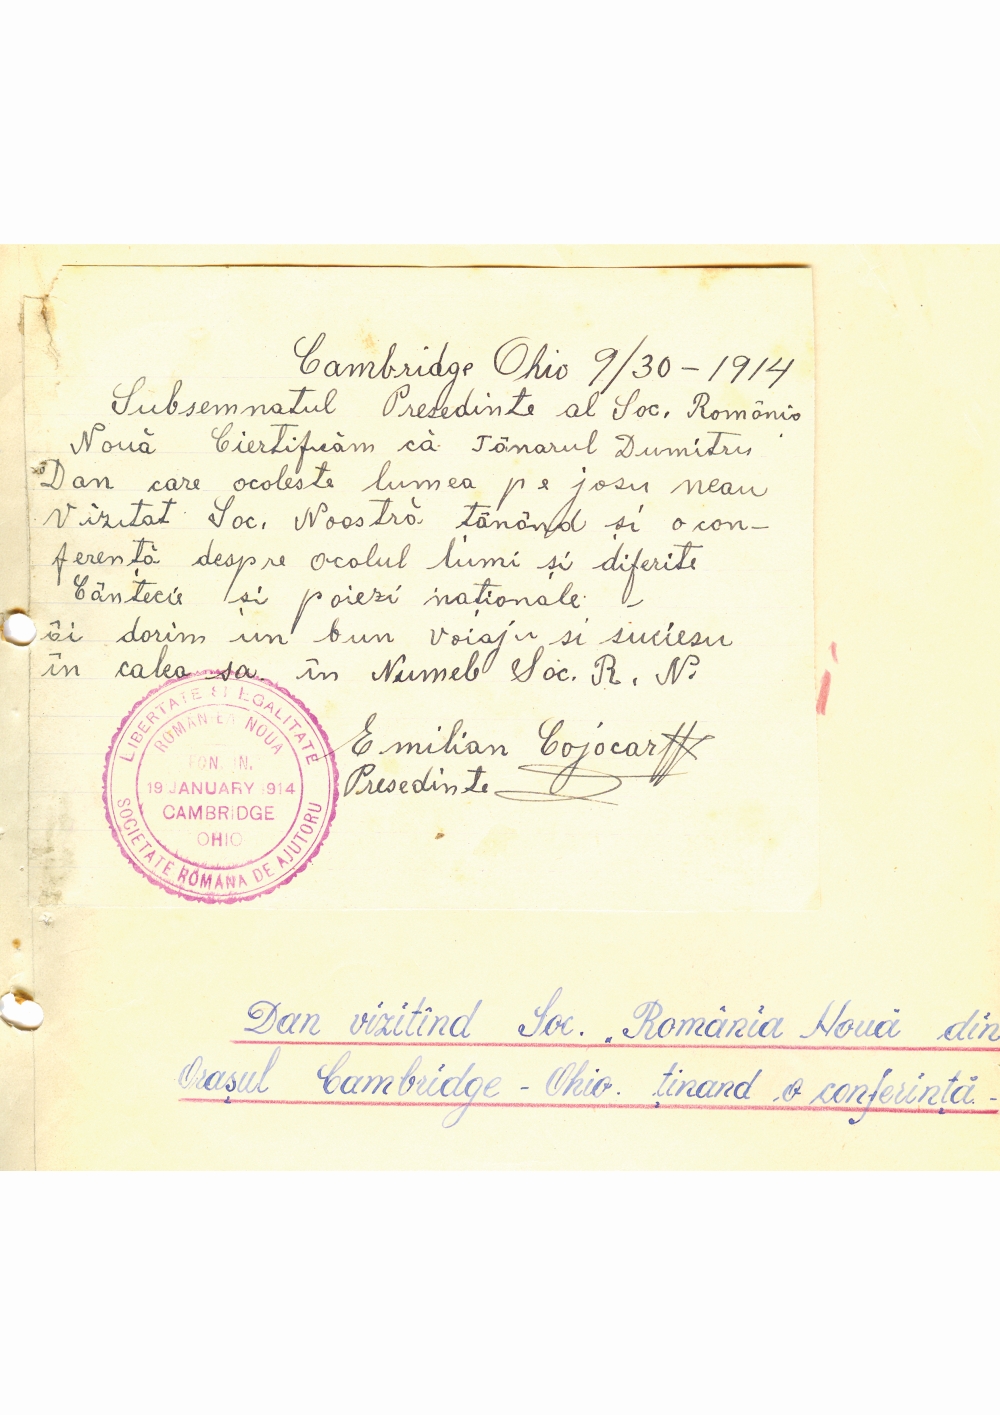 Cambridge Ohio 9/30 – 1914
Subsemnatul Presedinte al Soc. Românio
Nouă Ciertificăm că Tânarul Dumitru
Dan care ocoleste lumea pe josu neau
Vizitat Soc. Noastră tânând și o con–
ferență despre ocolul lumi și diferite
Cântecie și poiezi naționale –
âi dorim un bun voiaju si suciesu
în calea sa. în Numele Soc. R. N.
Emilian Cojocar
Presedinte
LIBERTATE SI EGALITATE
ROMANIEA NOUA
FON. IN.
19 JANUARY 1914
CAMBRIDGE
OHIO
SOCIETATE ROMANA DE AJUTORU
Dan vizitînd Soc. „România Nouă din
Orașul Cambridge – Ohio. ținand o conferință. –